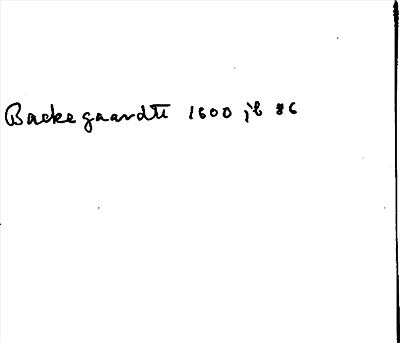 Backegaardtt 1600 jb 86